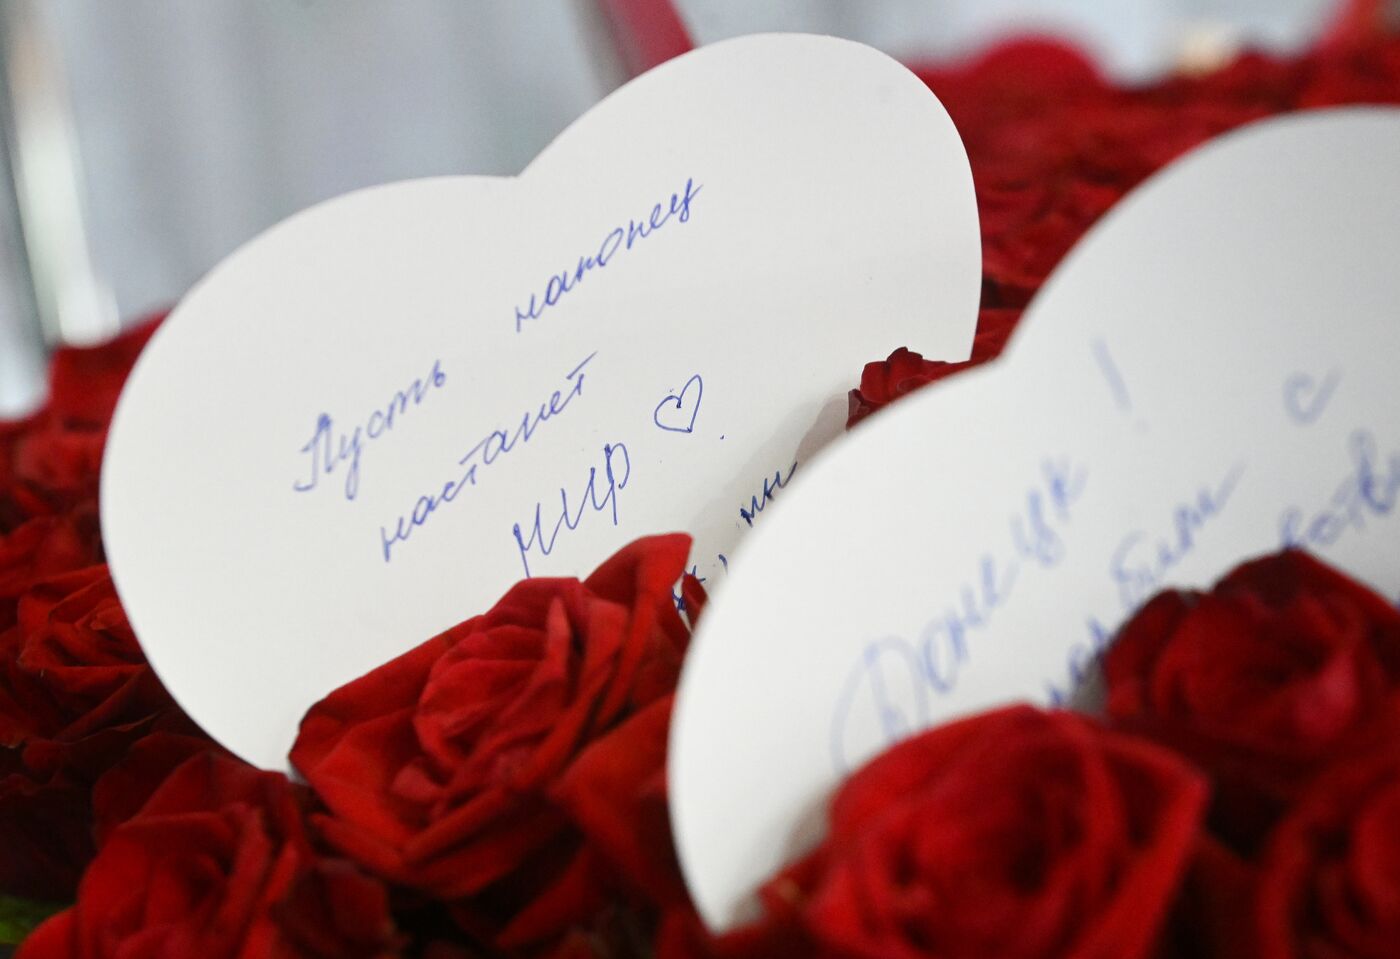 Пусть наконец
настанет
мир ♡
, мы
Донецк!
с